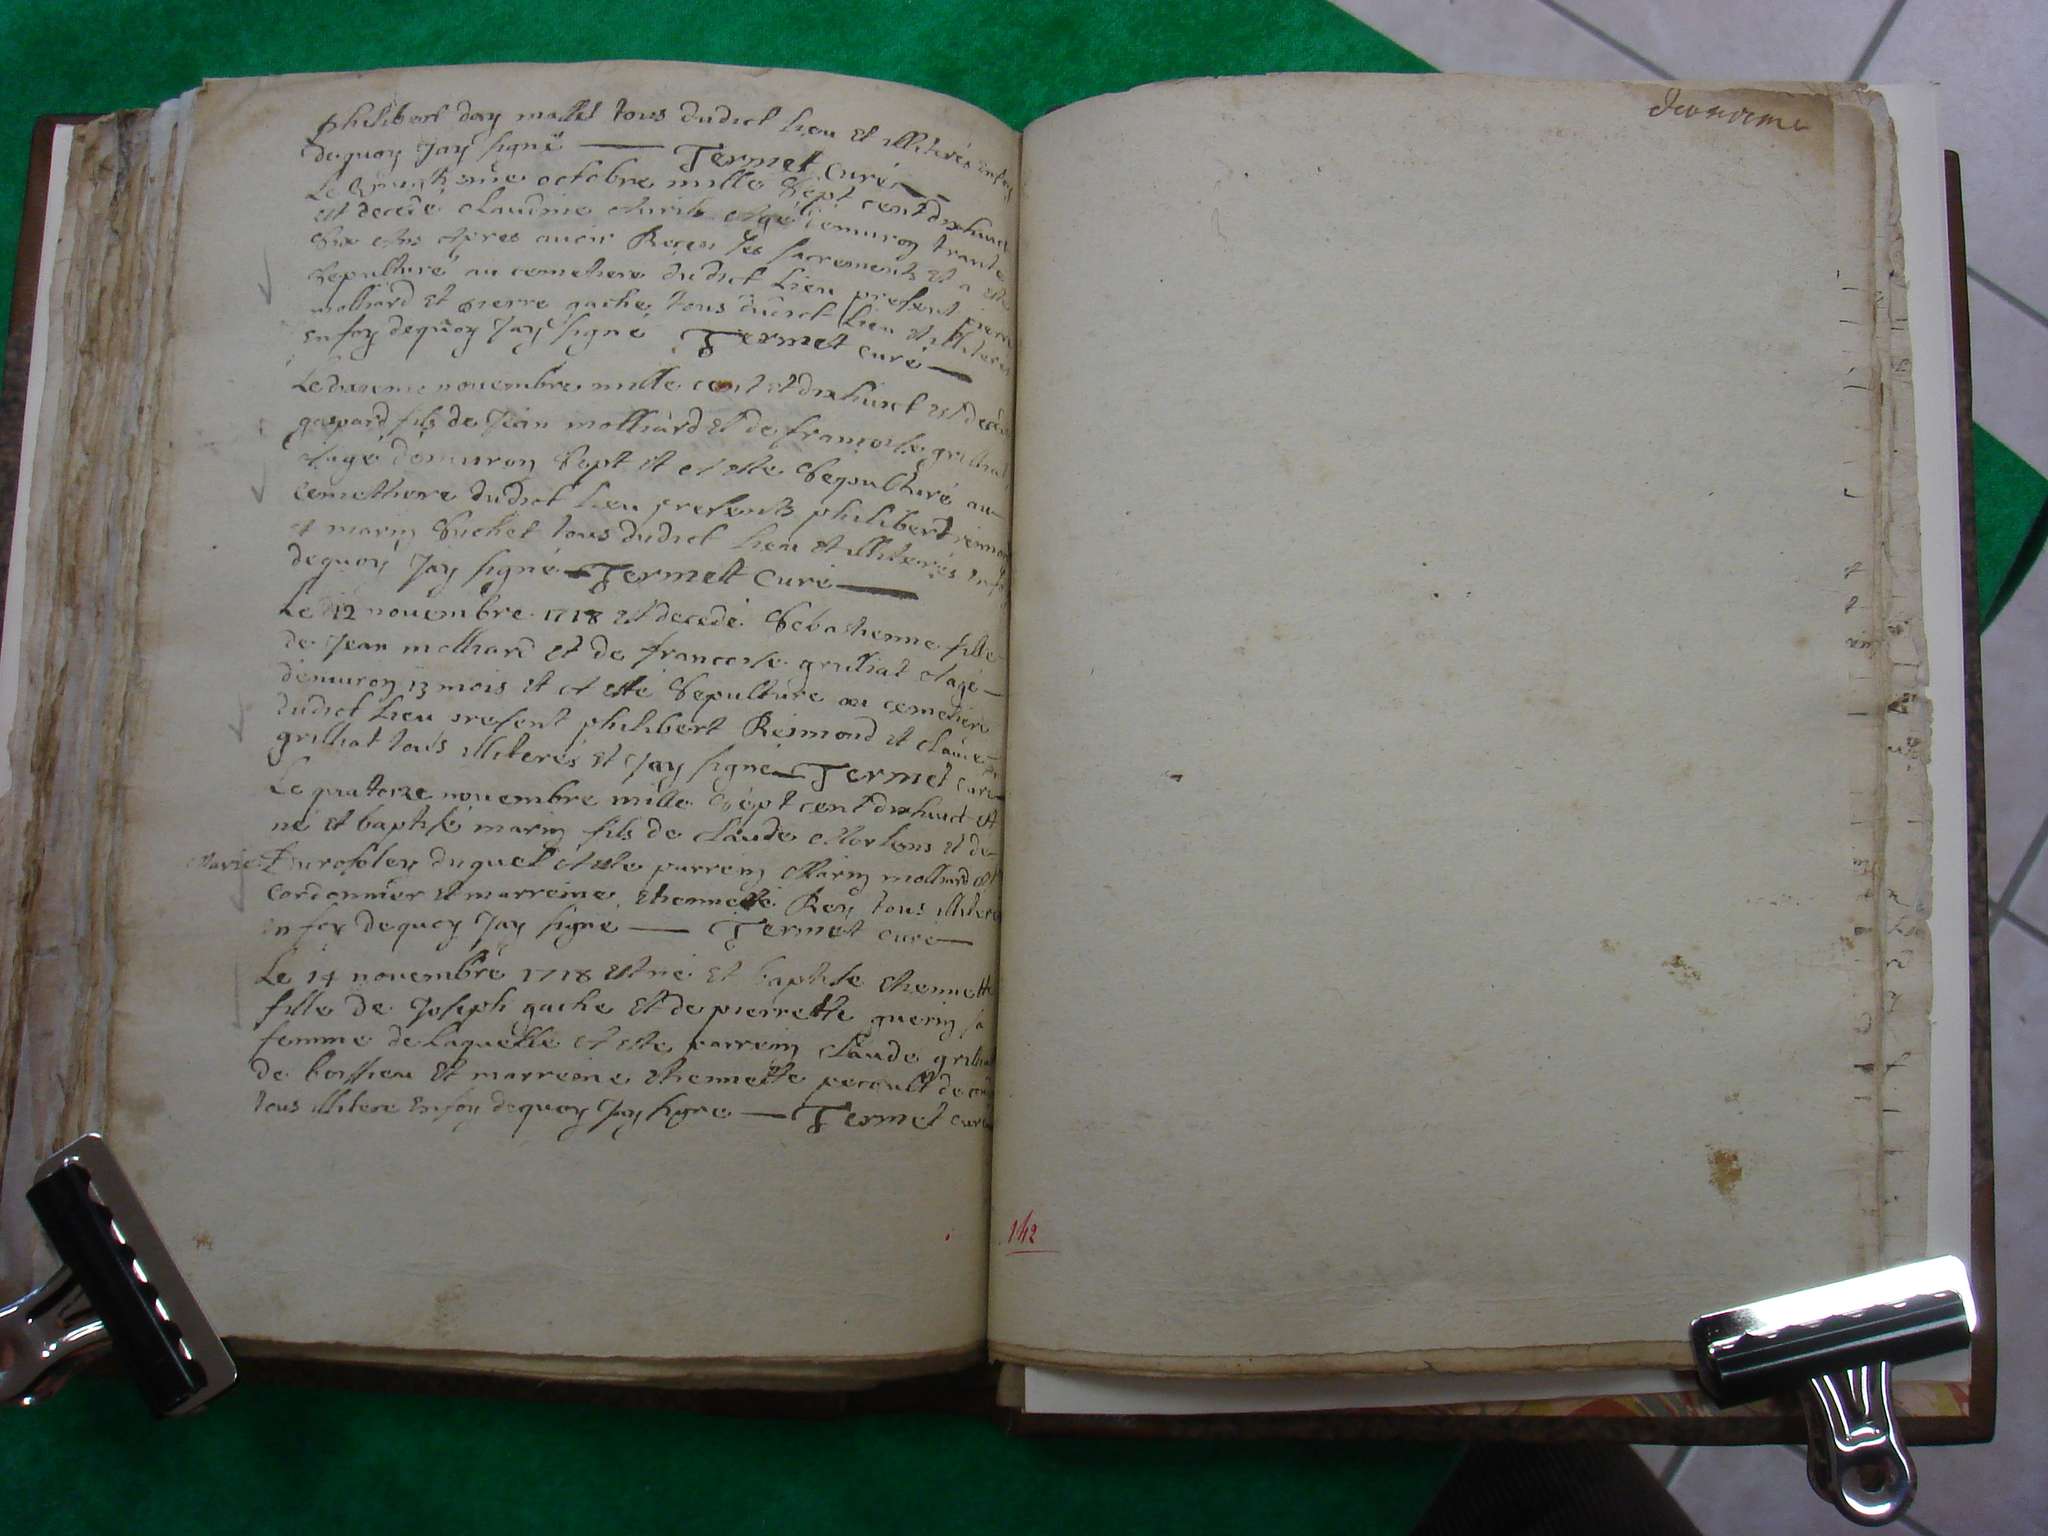 philibert day mattil tous dudict lieu et illiterés en foy
dequoy Jay signé Termet Curé
Le octobre mille Sept cent dixhuict
est decede claudine Agé demuron trante
Six Ans Apres auoir Receu les sacrements et a esté
Sepulturé au cemethere dudict Lieu present pierre
molliard et pierre gache tous dudict Lieu et illiteres
en foy dequoy Jay signé Termet curé
Le novembre mille cent et dixhuict est decede
gaspard fils de Jean molliard et de francoise grilliat
Aagé demuron Sept et A esté Sepulturé au
cemethere dudict lieu presents philibert reimond
et marin Suchet tous dudict lieu et illiterés en foy
dequoy Jay signé Termet Curé
Le 12 novembre 1718 est decedé Sebastienne fille
de Jean molliard et de francoise grilliat Aagé
demuron 13 mois et A esté Sepulture au cemetiere
dudict Lieu present philibert Reimond et claude
grilliat touts illiterés et Jay signé Termet Curé
Le quatorze novembre mille Sept cent dixhuict est
né et baptisé marin fils de claude et de
duquel A esté parrein Marin molliard
cordonnier et marreine ethennette Rey tous illiteré
en foy dequoy Jay signé Termet curé
Le 14 novembre 1718 est né et baptise ethennette
fille de Joseph gache et de pierrette guerin sa
femme de Laquelle A esté parrein claude grilliat
de boissieu et marreine ethennette pecoult de
tous illitere en foy dequoy Jay signe Termet curé
142